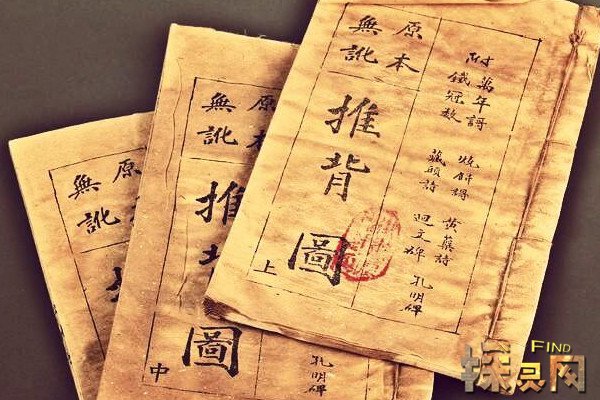 附
萬年謌
鐵冠數
燒餅謌
藏頭詩
黃蘗詩
迴文碑
孔明碑
原本
無訛
推背圖
上
原本
無訛
推
圖
中
孔明碑
原
無訛
FIND
探灵网